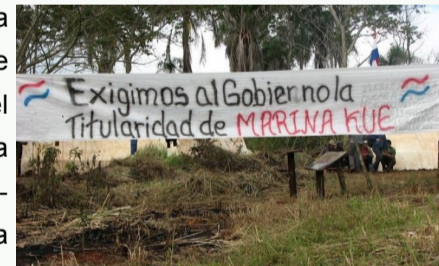 a
e
el
a
–
a
Exigimos al Gobierno la
Titularidad de MARINA KUE